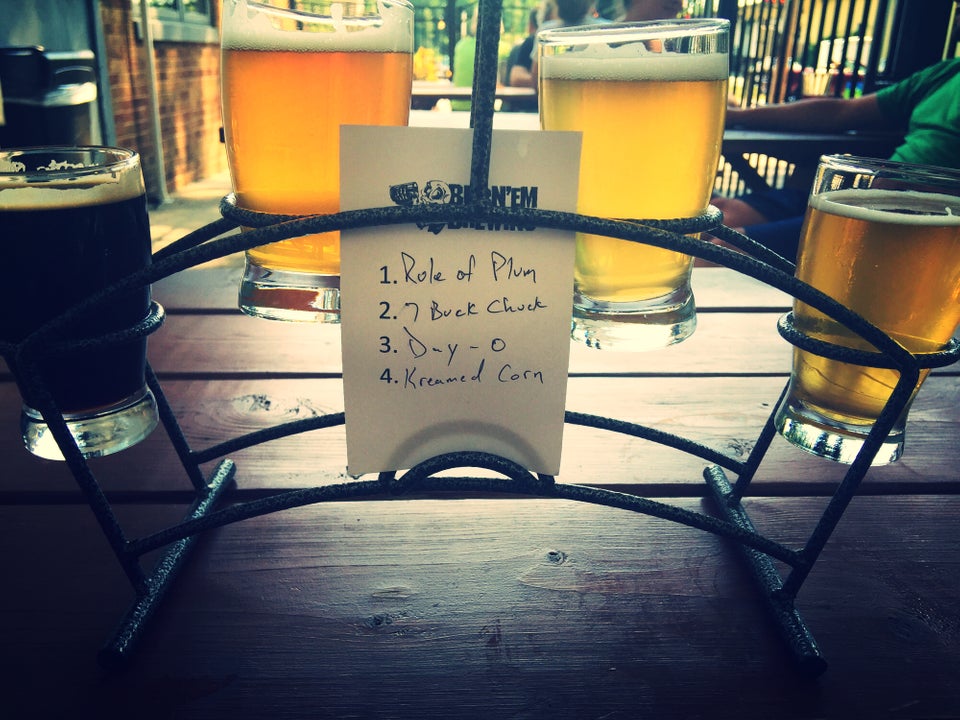 BREWING
1. Role of Plum
2. 7 Buck Chuck
3. Day-O
4. Kreamed Corn